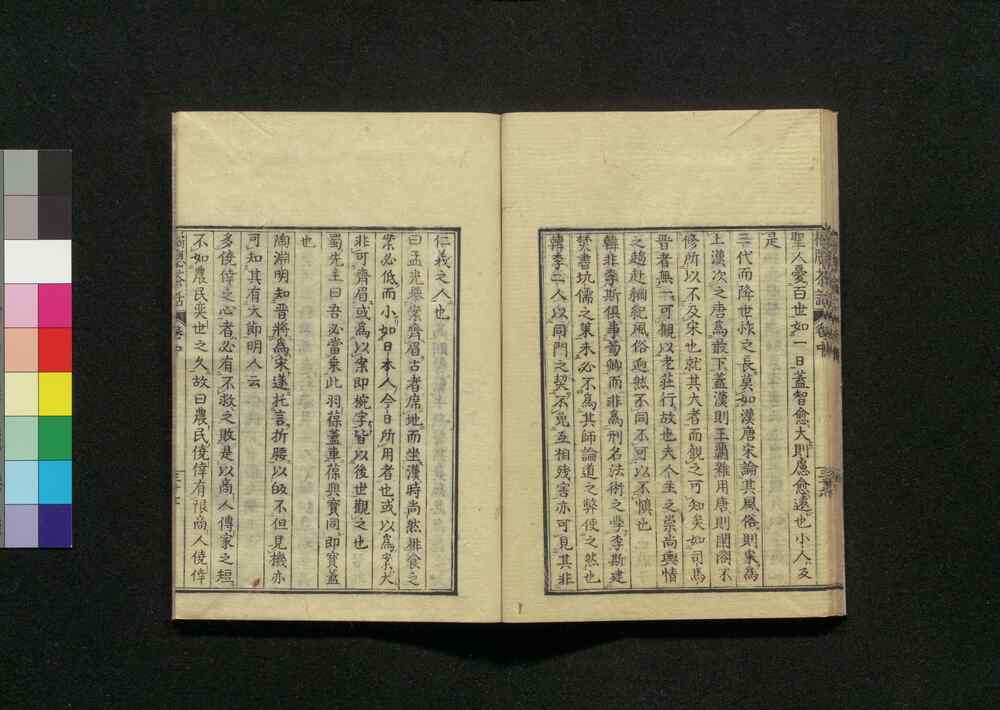 聖人憂百世如一日蓋智愈大則慮愈遠也小人及
是
三代而降世祚之長莫如漢唐宋論其風俗則宋為
上漢次之唐為最下蓋漢則王霸雜用唐則閨閤不
修所以不及宋也就其大者而観之可知矣如司馬
晋者無一可観以老荘行故也夫人主之崇尚與情
之趨赴綱紀風俗迥然不同不可以不慎也
韓非李斯倶事荀卿而非為刑名法術之學李斯建
焚書坑儒之策未必不為其師論道之弊使之然也
韓李二人以同門之契不免互相残害亦可見其非
仁義之人也
曰孟光擧案齊眉古者席地而坐漢時尚然排食之
案必低而小如日本人今日所用者也或以為案大
非可齊眉或為以案即椀字皆以後世観之也
蜀先主曰吾必當乗此羽葆蓋車葆與寶同即寶蓋
也
陶淵明知晋將為宋遂托言折腰以㱕不但見機亦
可知其有大節明人云
多僥倖之心者必有不救之敗是以商人傳家之短
不如農民奕世之久故曰農民僥倖有限商人僥倖